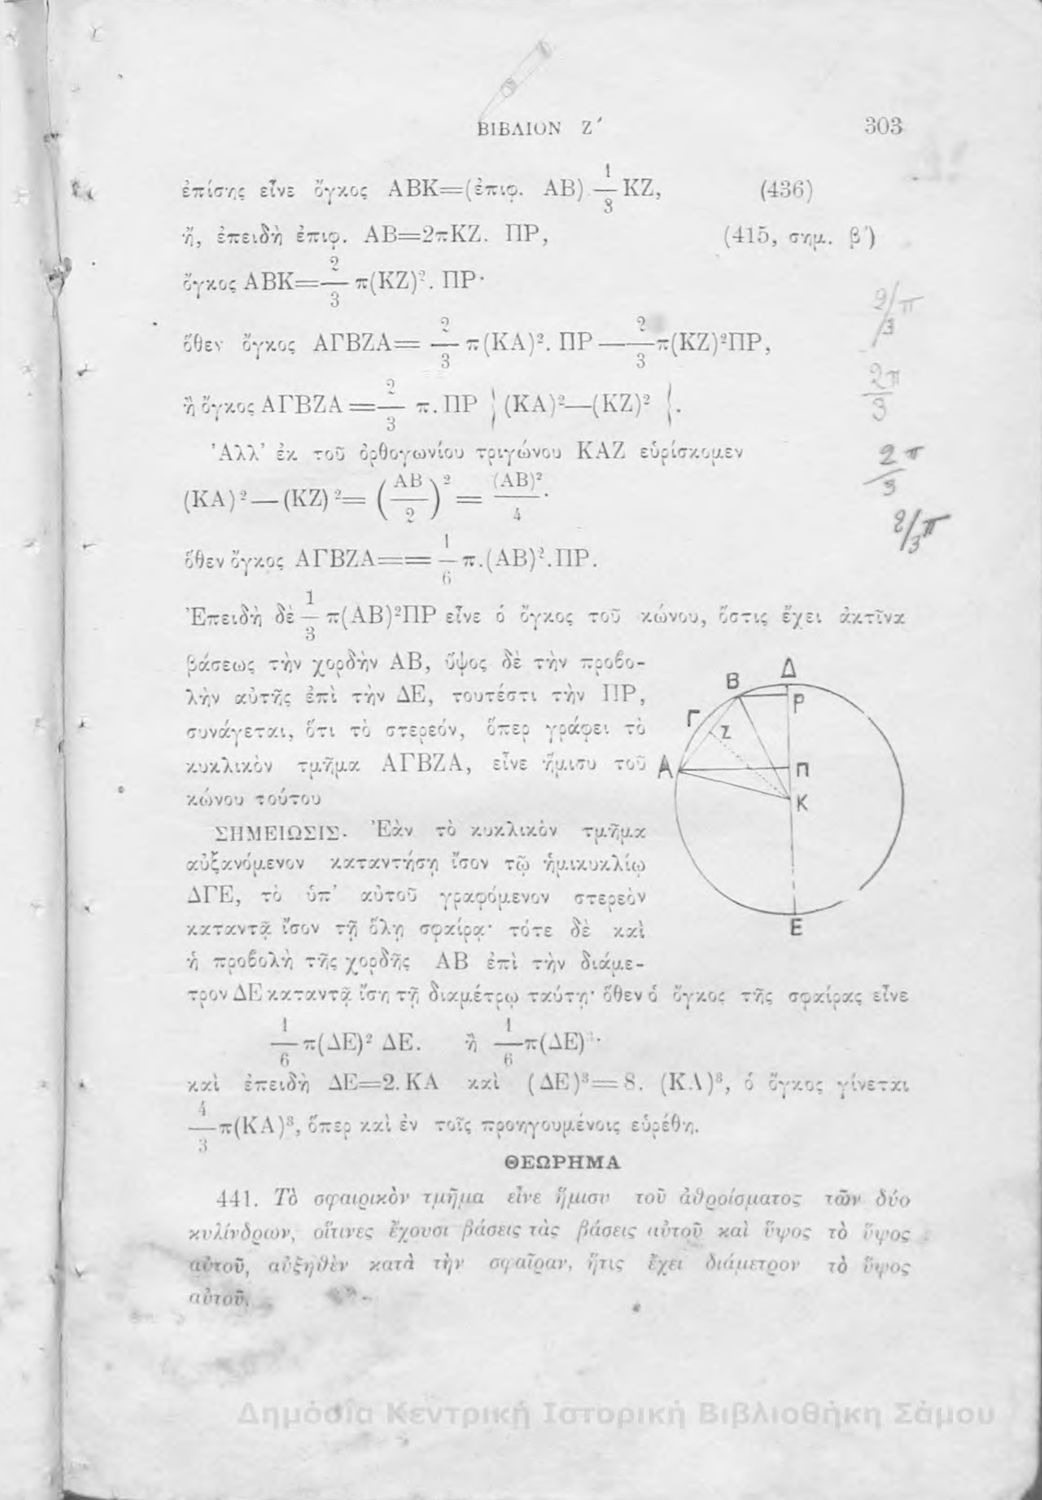 ΒΙΒΛΙΟΝ Ζ΄ 303
ἐπίσης εἶνε ὄγκος ΑΒΚ=(ἐπιφ. ΑΒ) 1/3 ΚΖ, (436)
ἤ, ἐπειδὴ ἐπιφ. ΑΒ=2πΚΖ. ΠΡ, (415, σημ. β΄)
ὄγκος ΑΒΚ= 2/3 π(ΚΖ)². ΠΡ·
2/3 π
ὅθεν ὄγκος ΑΓΒΖΑ= 2/3 π(ΚΑ)². ΠΡ — 2/3 π(ΚΖ)²ΠΡ,
ἢ ὄγκος ΑΓΒΖΑ = 2/3 π. ΠΡ { (ΚΑ)²—(ΚΖ)² }.
2π/3
Ἀλλ' ἐκ τοῦ ὀρθογωνίου τριγώνου ΚΑΖ εὑρίσκομεν
2π/3
(ΚΑ)²—(ΚΖ)²= (ΑΒ/2)² = (ΑΒ)²/4 ·
2/3 π
ὅθεν ὄγκος ΑΓΒΖΑ== 1/6 π.(ΑΒ)².ΠΡ.
Ἐπειδὴ δὲ 1/3 π(ΑΒ)²ΠΡ εἶνε ὁ ὄγκος τοῦ κώνου, ὅστις ἔχει ἀκτῖνα
βάσεως τὴν χορδὴν ΑΒ, ὕψος δὲ τὴν προβο-
λὴν αὐτῆς ἐπὶ τὴν ΔΕ, τουτέστι τὴν ΠΡ,
συνάγεται, ὅτι τὸ στερεόν, ὅπερ γράφει τὸ
κυκλικὸν τμῆμα ΑΓΒΖΑ, εἶνε ἥμισυ τοῦ
κώνου τούτου
Δ
Β
Ρ
Γ
Ζ
Α
Π
Κ
Ε
ΣΗΜΕΙΩΣΙΣ. Ἐὰν τὸ κυκλικὸν τμῆμα
αὐξανόμενον καταντήσῃ ἴσον τῷ ἡμικυκλίῳ
ΔΓΕ, τὸ ὑπ' αὐτοῦ γραφόμενον στερεὸν
καταντᾷ ἴσον τῇ ὅλῃ σφαίρᾳ· τότε δὲ καὶ
ἡ προβολὴ τῆς χορδῆς ΑΒ ἐπὶ τὴν διάμε-
τρον ΔΕ καταντᾷ ἴση τῇ διαμέτρῳ ταύτῃ· ὅθεν ὁ ὄγκος τῆς σφαίρας εἶνε
1/6 π(ΔΕ)² ΔΕ. ἢ 1/6 π(ΔΕ)³·
καὶ ἐπειδὴ ΔΕ=2.ΚΑ καὶ (ΔΕ)³=8. (ΚΑ)³, ὁ ὄγκος γίνεται
4/3 π(ΚΑ)³, ὅπερ καὶ ἐν τοῖς προηγουμένοις εὑρέθη.
ΘΕΩΡΗΜΑ
441. Τὸ σφαιρικὸν τμῆμα εἶνε ἥμισυ τοῦ ἀθροίσματος τῶν δύο
κυλίνδρων, οἵτινες ἔχουσι βάσεις τὰς βάσεις αὐτοῦ καὶ ὕψος τὸ ὕψος
αὐτοῦ, αὐξηθὲν κατὰ τὴν σφαῖραν, ἥτις ἔχει διάμετρον τὸ ὕψος
αὐτοῦ.
Δημόσια Κεντρική Ιστορική Βιβλιοθήκη Σάμου